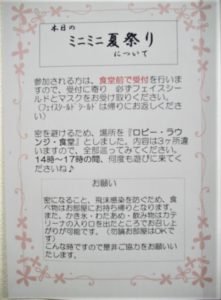 本日の
ミニミニ夏祭り
について
参加される方は、食堂前で受付を行いま
すので、受付に寄り 必ずフェイスシー
ルドとマスクをお受け取りください。
(フェイスシールドは帰りにお返しくださ
い)
密を避けるため、場所を『ロビー・ラウ
ンジ・食堂』としました。内容は3ヶ所違
いますので、全部巡ってみてください。
14時～17時の間、何度も遊びに来てく
ださいね♪
お願い
密になること、飛沫感染を防ぐため、食
べ物はお部屋にお持ち帰りとなります。
また、かき氷・わたあめ・飲み物はカテ
リーナの入りを出たところでお召し上
がりが可能です。（勿論お部屋はOKで
す）
こんな時ですので是非ご協力をお願いい
たします。